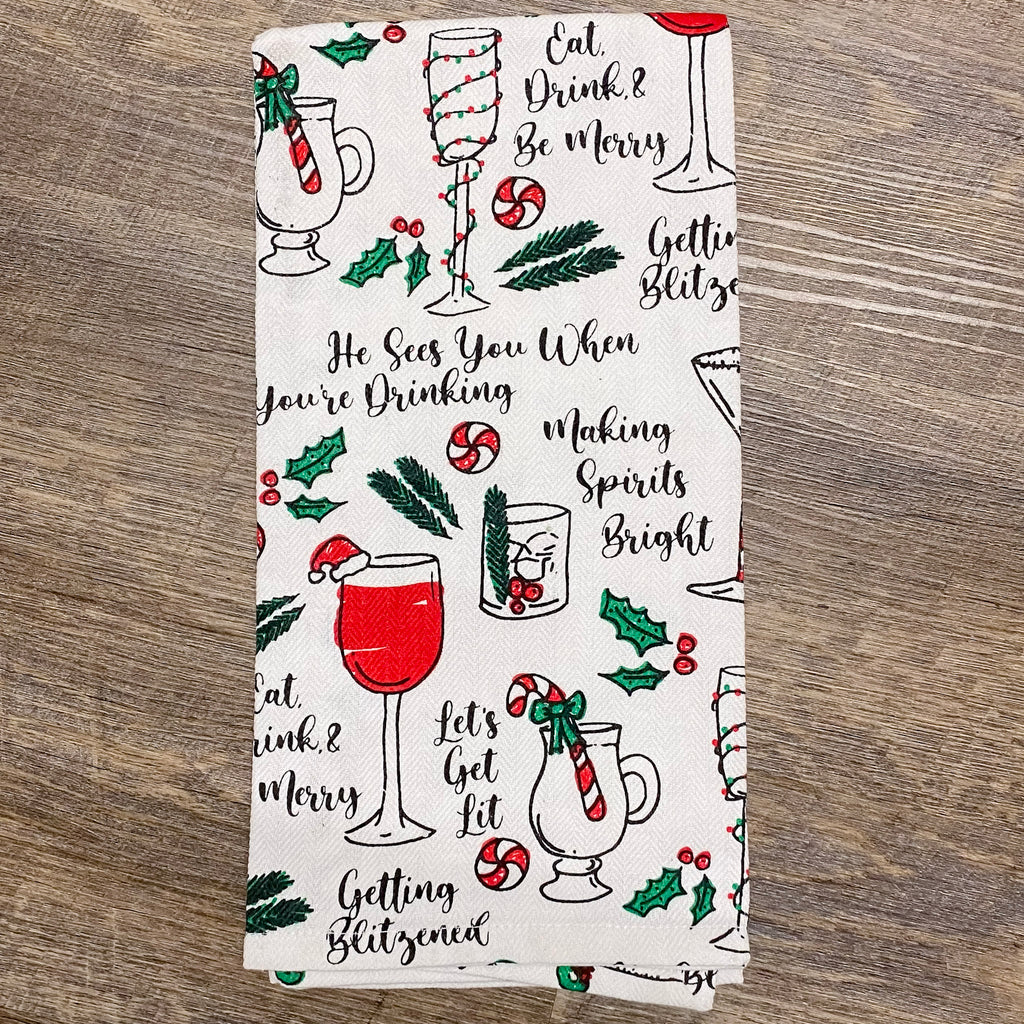 Eat,
Drink, &
Be Merry
Gettin
Blitze
He Sees You When
You're Drinking
Making
Spirits
Bright
Eat,
rink, &
Merry
Let's
Get
Lit
Getting
Blitzened